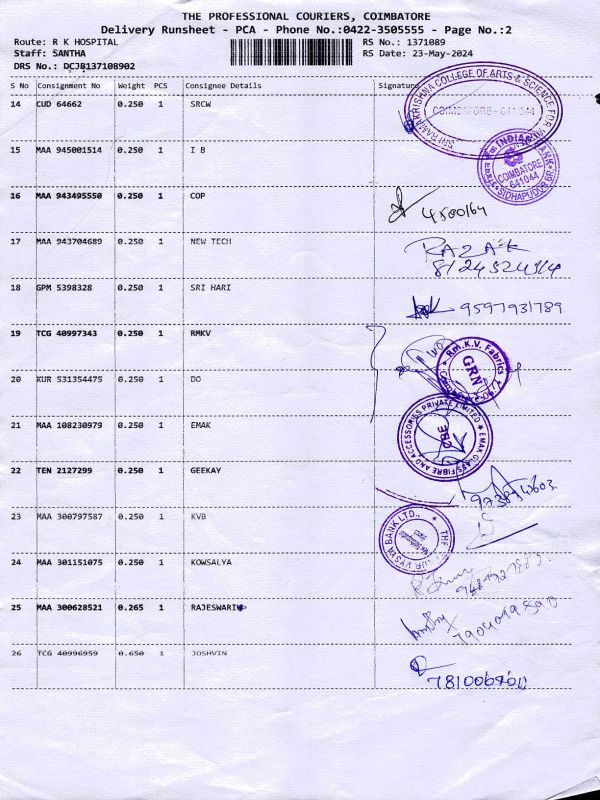 THE PROFESSIONAL COURIERS, COIMBATORE
Delivery Runsheet - PCA - Phone No.:0422-3505555 - Page No.:2
Route: R K HOSPITAL RS No.: 1371089
Staff: SANTHA RS Date: 23-May-2024
DRS No.: DCJB137108902
S No Consignment No Weight PCS Consignee Details Signature
14 CUD 64662 0.250 1 SRCW
KRISHNA COLLEGE OF ARTS & SCIENCE FOR
COIMBATORE - 641 044
15 MAA 945001514 0.250 1 I B
INDIAN BANK
COIMBATORE
641044
SIDHAPUDUR BR.
16 MAA 943495550 0.250 1 COP
17 MAA 943704689 0.250 1 NEW TECH
RAZAK
18 GPM 5398328 0.250 1 SRI HARI
9597931789
19 TCG 40997343 0.250 1 RMKV
Rm.K.V. Fabrics
GRN
20 KUR 531354475 0.250 1 DO
21 MAA 108230979 0.250 1 EMAK
EMAK GLASS FIBRE AND ACCESSORIES PRIVATE LIMITED
CBE
22 TEN 2127299 0.250 1 GEEKAY
23 MAA 300797587 0.250 1 KVB
VYSYA BANK LTD.,
24 MAA 301151075 0.250 1 KOWSALYA
25 MAA 300628521 0.265 1 RAJESWARI
26 TCG 40996959 0.650 1 JOSHVIN